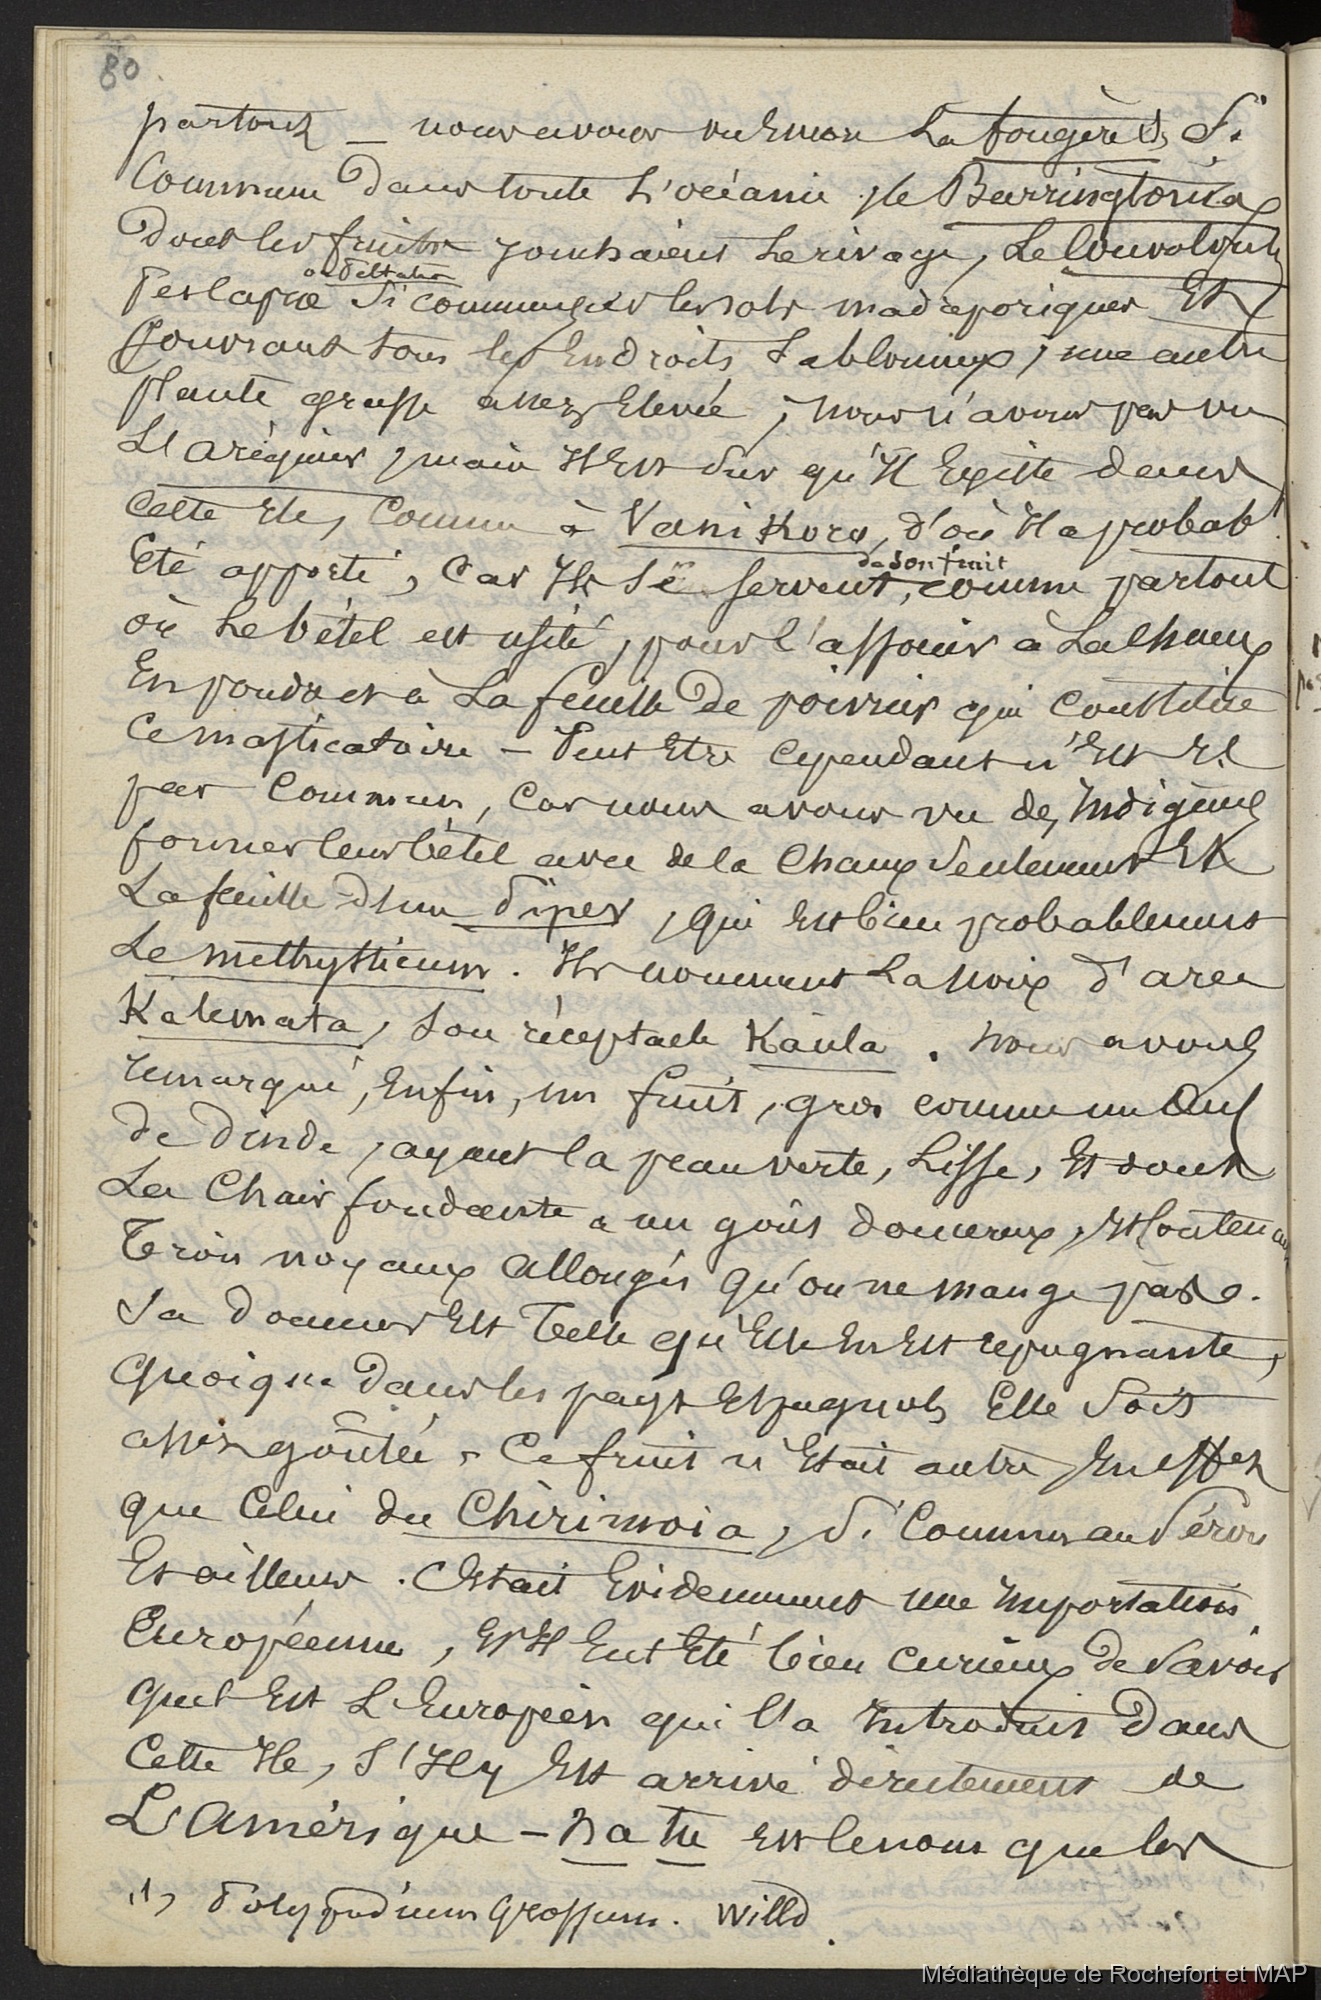 80
partout _ nous avons vu encore La fougère (1) Si
Commune Dans toute L'océanie, Le Barringtonia
Dont les fruits jonchaient Le rivage, Le Convolvulus
Pescaprae ou deltalu Si commun sur les sols madréporiques Et
Couvrant tous les Endroits Sablonneux, une autre
plante grasse assez Elevée ; nous n'avons pas vu
L'Aréquier, mais Il Est sûr qu'Il Existe dans
Cette Ile, Comme à Vanikoro, d'où Il a probabt
Eté apporté, Car Ils Se Servent de son fruit, comme partout
où Le bétel est usité, pour l'associer à La Chaux
En poudre et à La feuille De poivrier qui Constitue
Ce masticatoire – Peut Etre Cependant n'Est Il
pas Commun, Car nous avons vu des Indigènes
former leur bétel avec de la Chaux Seulement Et
La feuille d'un piper, qui Est bien probablement
Le methysticum. Ils nomment La noix d'arec
Kalemata, Son réceptacle Kaula. Nous avons
remarqué, Enfin, un fruit, gros comme un Oeuf
de dinde, ayant la peau verte, Lisse, Et dont
La Chair fondante a un goût doucereux, Et Contenant
Trois noyaux allongés qu'on ne mange pas.
Sa douceur Est Telle qu'Elle En Est repugnante,
Quoique Dans les pays Espagnols Elle Soit
assez goûtée. Ce fruit n'Etait autre, En effet
que Celui du Chirimoia, Si Commun au Pérou
Et ailleurs. C'Etait Evidemment une Importation
Européenne, Et Il Eut Eté bien curieux de Savoir
quel Est L'Européen qui l'a Introduit Dans
Cette Ile, S'Il y Est arrivé directement de
L'Amérique – natu Est le nom que les
(1) Polypodium Grossum. Willd.
Médiathèque de Rochefort et MAP